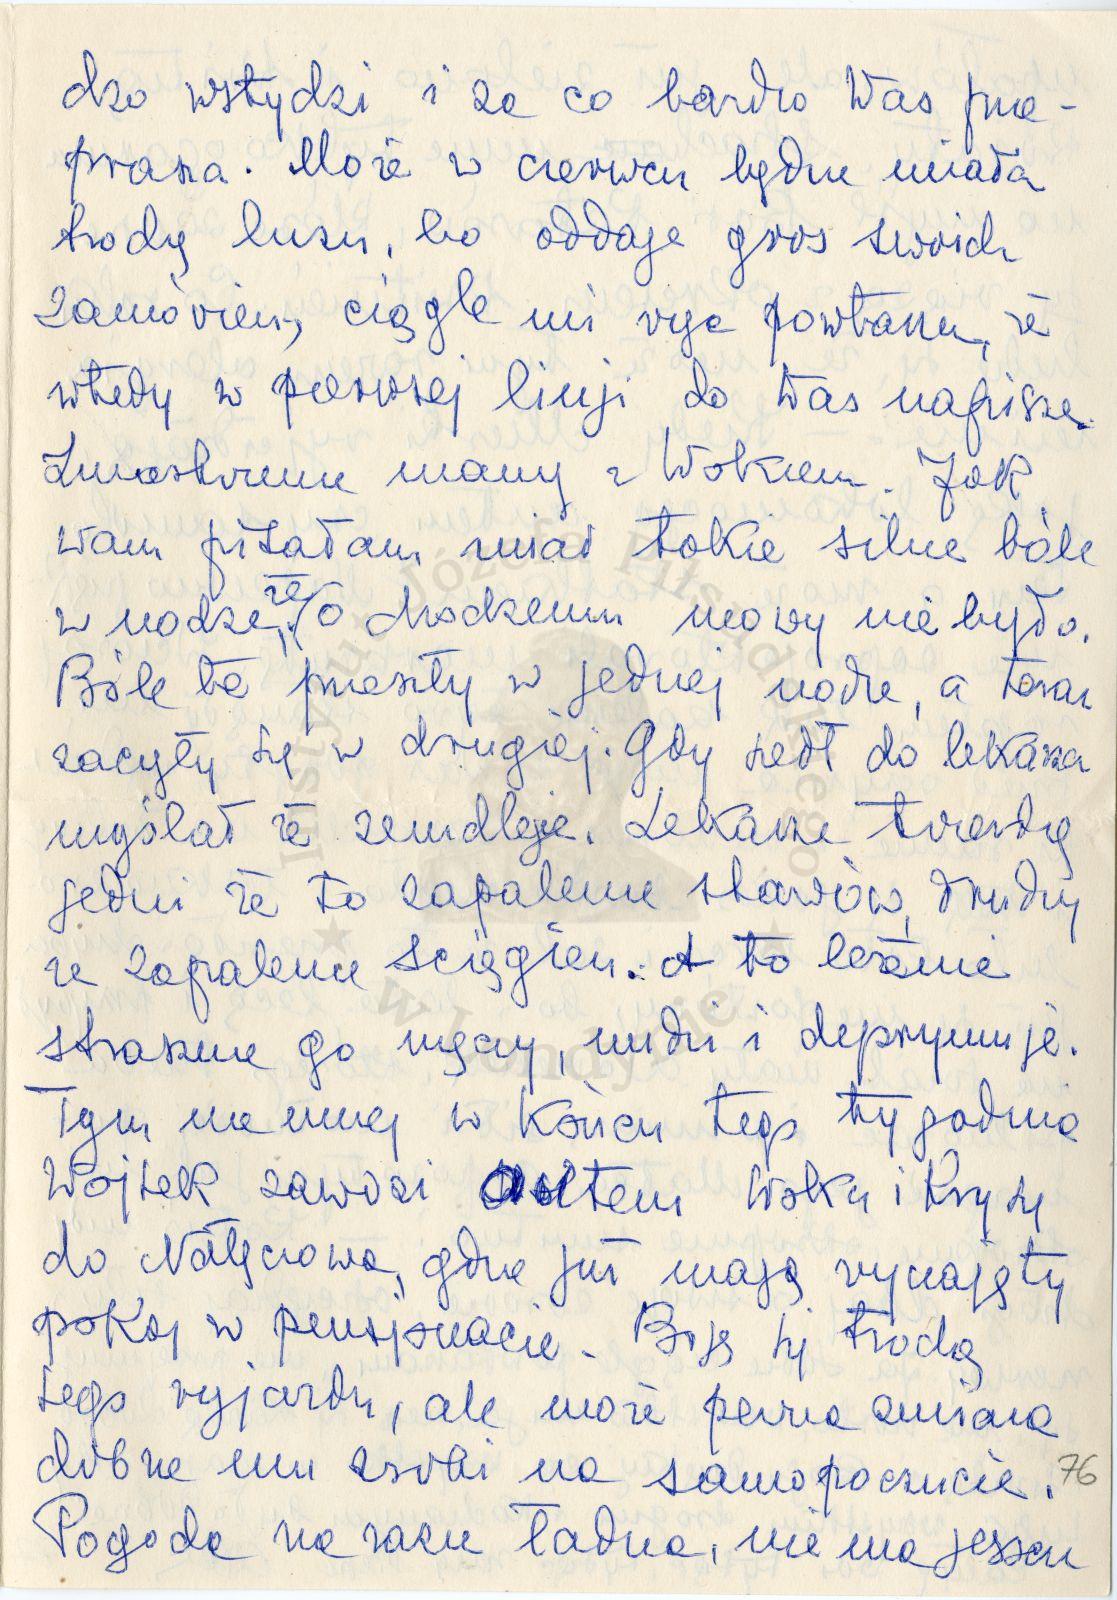 dzo wstydzi i za co bardzo Was prze-
prasza. Może w czerwcu będzie miała
trochę luzu, bo oddaje gros swoich
zamówień, ciągle mi więc powtarza, że
wtedy w pierwszej linji do Was napisze.
Zmartwienie mamy z Wokiem. Jak
wam pisałam miał takie silne bóle
w nodze, że o chodzeniu mowy nie było.
Bóle te przeszły w jednej nodze, a teraz
zaczęły się w drugiej. Gdy szedł do lekarza
myślał że zemdleje. Lekarze twierdzą
jedni że to zapalenie stawów, drudzy
że zapalenie ścięgien. A to leżenie
strasznie go męczy, nudzi i deprymuje.
Tym nie mniej w końcu tego tygodnia
Wojtek zawozi autem Woka i Krysię
do Nałęczowa, gdzie już mają wynajęty
pokój w pensjonacie. Boję się trochę
tego wyjazdu, ale może pewna zmiana
dobrze mu zrobi na samopoczucie.
76
Pogoda na razie ładna, nie ma jeszcze
Instytut Józefa Piłsudskiego
w Londynie